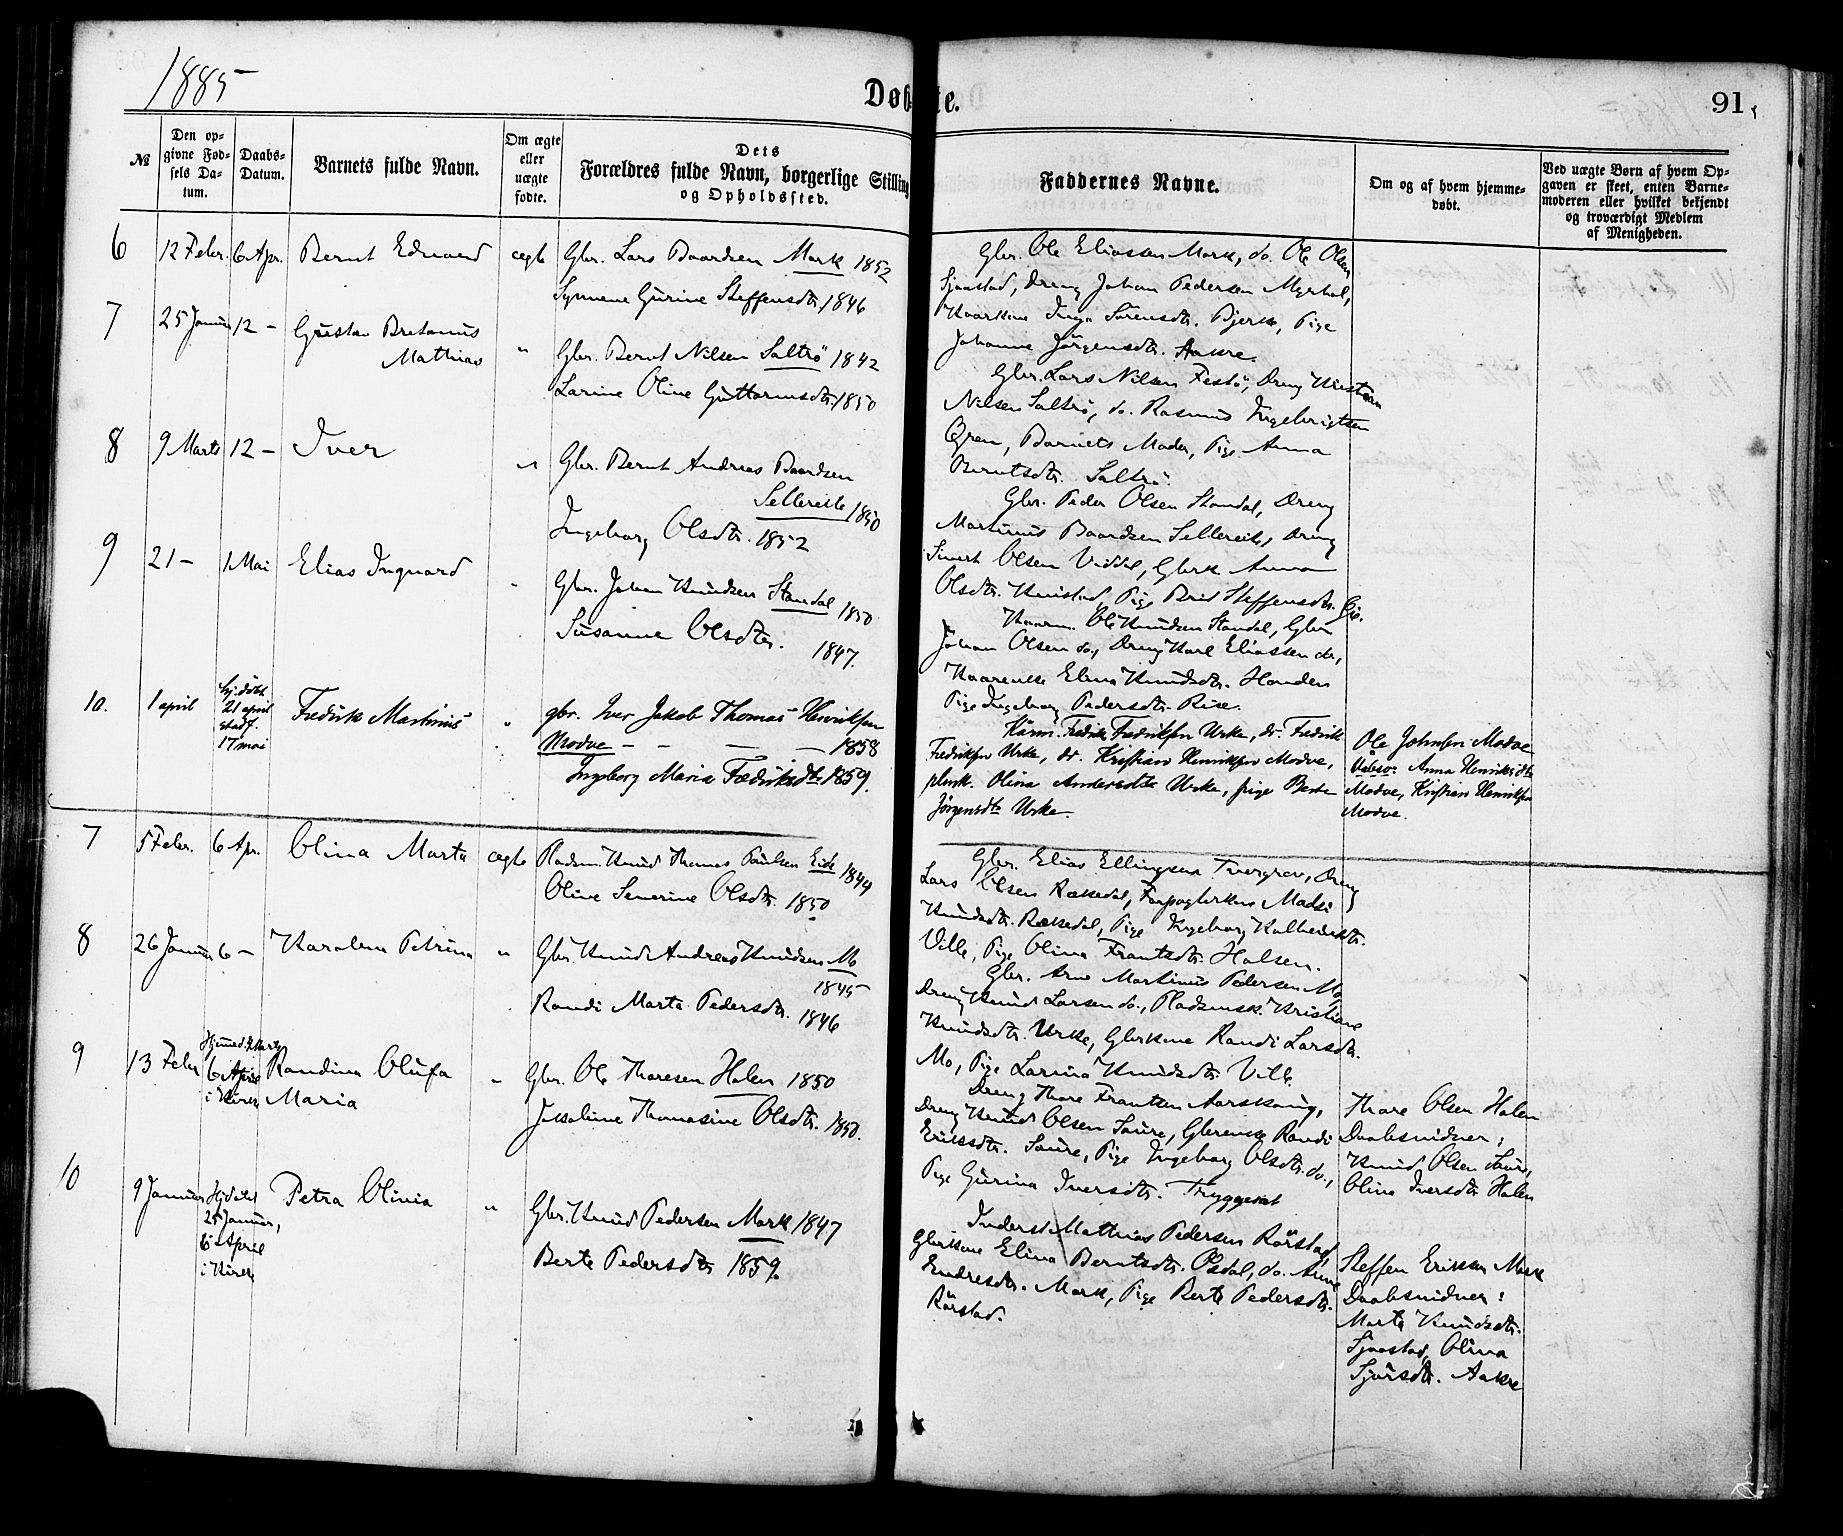 1885
Døbte.
91.
№
Den op-
givne Fød-
sels Da-
tum.
Daabs-
Datum.
Barnets fulde Navn.
Om ægte
eller
uægte
fødte.
Dets
Forældres fulde Navn, borgerlige Stilling
og Opholdssted.
Faddernes Navne.
Om og af hvem hjemme-
døbt.
Ved uægte Børn af hvem Op-
gaven er skeet, enten Barne-
moderen eller hvilket bekjendt
og troværdigt Medlem
af Menigheden.
6 12 Febr. 6 Apr. Bernt Edvard ægte
Gbr. Lars Baardsen Mork 1852
Synnene Gurine Steffensdtr. 1846
Gbr. Ole Eliassen Mork, do. Ole Olsen
Sjaastad, Dreng Johan Pedersen Myrhol,
Kaarkone Inga Sørensdtr. Bjerk, Pige
Johanne Jörgensdtr. Aakre.
7 25 Januar 12 – Gustav Bretanus
Mathias "
Gbr. Bernt Nilsen Saltrö 1842
Larine Oline Guttormsdtr. 1850
Gbr. Lars Nilsen Festö, Dreng Kristian
Nilsen Saltrö, do. Rasmus Ingebrigtsen
Qren, Barnets Moder, Pige Anna
Berntsdtr. Saltrö.
8 9 Marts 12 – Iver "
Gbr. Bernt Andreas Baardsen
Sellereite 1850
Ingeborg Olsdtr. 1852
Gbr. Peder Olsen Standal, Dreng
Martinus Baardsen Sellereite, Dreng
Sivert Olsen Viddal, Gbrk Anna
Olsdtr. Knistad, Pige Brit Steffensdtr. Gjø.
9 21 – 1 Mai Elias Ingvard "
Gbr. Johan Knudsen Standal 1850
Susanne Olsdtr. 1847.
Kaarm. Ole Knudsen Standal, Gbr.
Johan Olsen do., Dreng Karl Eliassen do.,
Kaarenke Elina Knudsdtr. Handen
Pige Ingeborg Pedersdtr. Rise.
10. 1 april Hj. døbt
21 april
stadf.
17 mai
Fredrik Martinus "
gbr. Iver Jakob Thomas Henriksen
Modve – – – – 1858
Ingeborg Maria Fredriksdtr. 1859.
Kårm. Fredrik Fredriksen Urke, do. Fredrik
Fredriksen Urke, dr. Kristian Henriksen Modve,
plmk. Olina Andersdtr Urke, pige Berte
Jörgensdtr Urke.
Ole Johnsen Modve
Anna Henriksdtr
Modve, Kristian Henriksen
Modve.
7 5 Febr. 6 Apr. Olina Marta ægte
Pladsm. Knud Thomas Paulsen Eide 1849
Oline Severine Olsdtr. 1850
Gbr. Elias Ellingsen Tvergrov, Dreng
Lars Olsen Rækkedal, Madsi
Knudsdtr. Rækkedal, Pige Ingeborg
Ville, Pige Olina Frantsdtr. Halsen.
8 26 Januar 6 – Karolina Petrina "
Gbr. Knud Andreas Knudsen Mo
1845
Randi Marta Pedersdtr. 1846
Gbr. Arne Martinus Pedersen Mo,
Dreng Knud Larsen do., Pladsmsk. Kristiane
Knudsdtr. Urke, Gbrkone Randi Larsdtr.
Mo, Pige Larina Knudsdtr. Ville.
9 13 Febr. Hjemmed. Marts
6 April
i Kirke
Randina Olufa
Maria "
Gbr. Ole Thoresen Halen 1850
Jakobine Thomasine Olsdtr. 1850.
Dreng Thore Frantsen Aarskoug,
Dreng Knud Olsen Saure, Gbrenke Randi
Eriksdtr. Saure, Pige Ingeborg Olsdtr. do.,
Pige Gurina Iversdtr. Tryggestad
Thore Olsen Halen
Daabsvidner:
Knud Olsen Saure,
Olina Iversdtr. Halen
10 9 Januar Hjdøbt
25 Januar,
6 April
i Kirke
Petra Olivia "
Gbr. Knud Pedersen Mork 1847
Berte Pedersdtr 1859.
Inderst Mathias Pedersen Rørstad,
Gbrkone Elina Berntsdtr. Opdal, do. Anne
Endresdtr. Mork, Pige Berte Pedersdtr.
Rørstad.
Steffen Eriksen Mork
Daabsvidner:
Marte Knudsdtr.
Sjaastad, Olina
Sjursdtr. Aakre